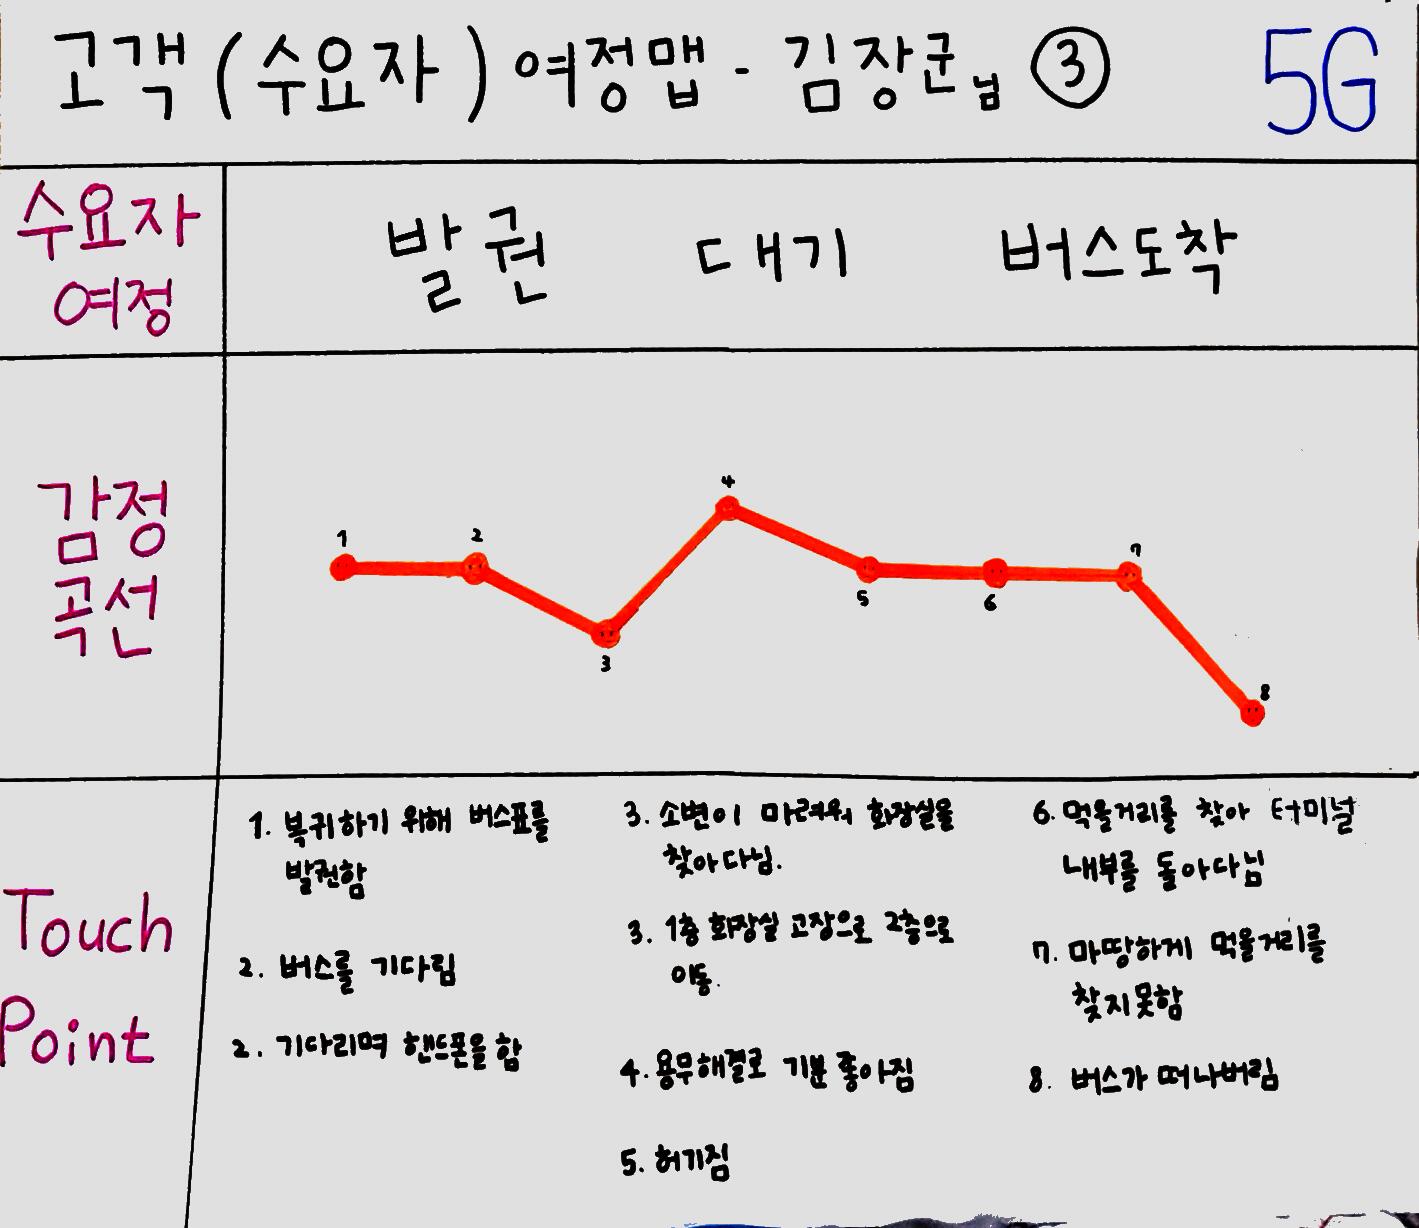 고객(수요자) 여정맵 - 김장군님 ③
5G
수요자
여정
발권 대기 버스도착
감정
곡선
1
2
3
4
5
6
7
8
Touch
Point
1. 복귀하기 위해 버스표를
발권함
2. 버스를 기다림
2. 기다리며 핸드폰을 함
3. 소변이 마려워 화장실을
찾아다님.
3. 1층 화장실 고장으로 2층으로
이동.
4. 용무해결로 기분 좋아짐
5. 허기짐
6. 먹을거리를 찾아 터미널
내부를 돌아다님
7. 마땅하게 먹을거리를
찾지못함
8. 버스가 떠나버림